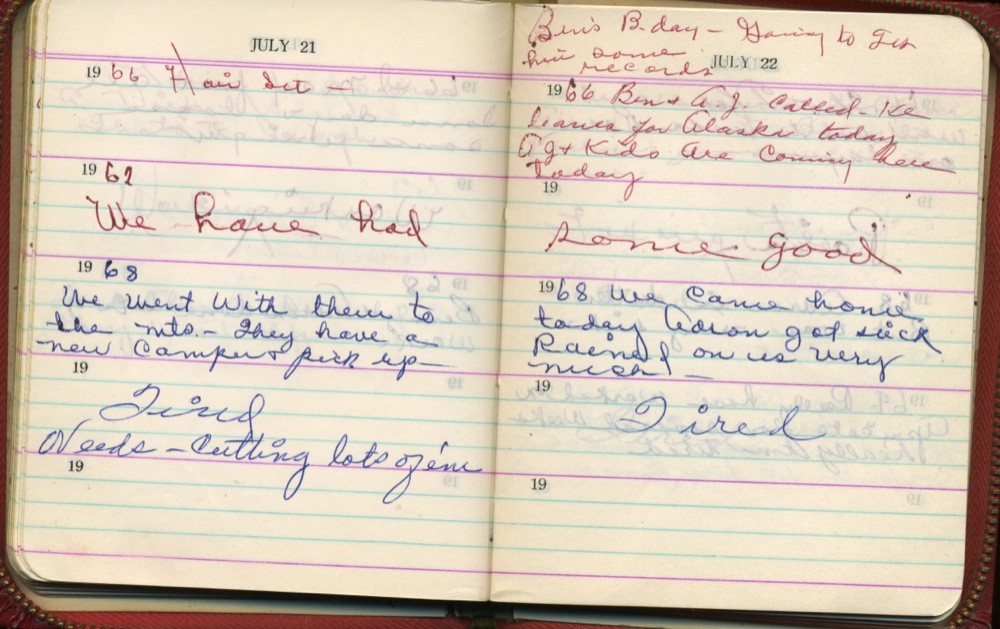 JULY 21
1966 Hair Set -
1967
We have had
1968
We went With them to
the mts. - They have a
new Camper & pick up -
19
Tired
Weeds - Cutting lots of em
19
Ben's B.day - Going to Get
him some
records
JULY 22
1966 Ben & A.J. Called - He
leaves for Alaska today
AJ & Kids are Coming here
today
19
some good
1968 We Came home
today Aaron got sick
Rained on us very
much! -
19
Tired
19